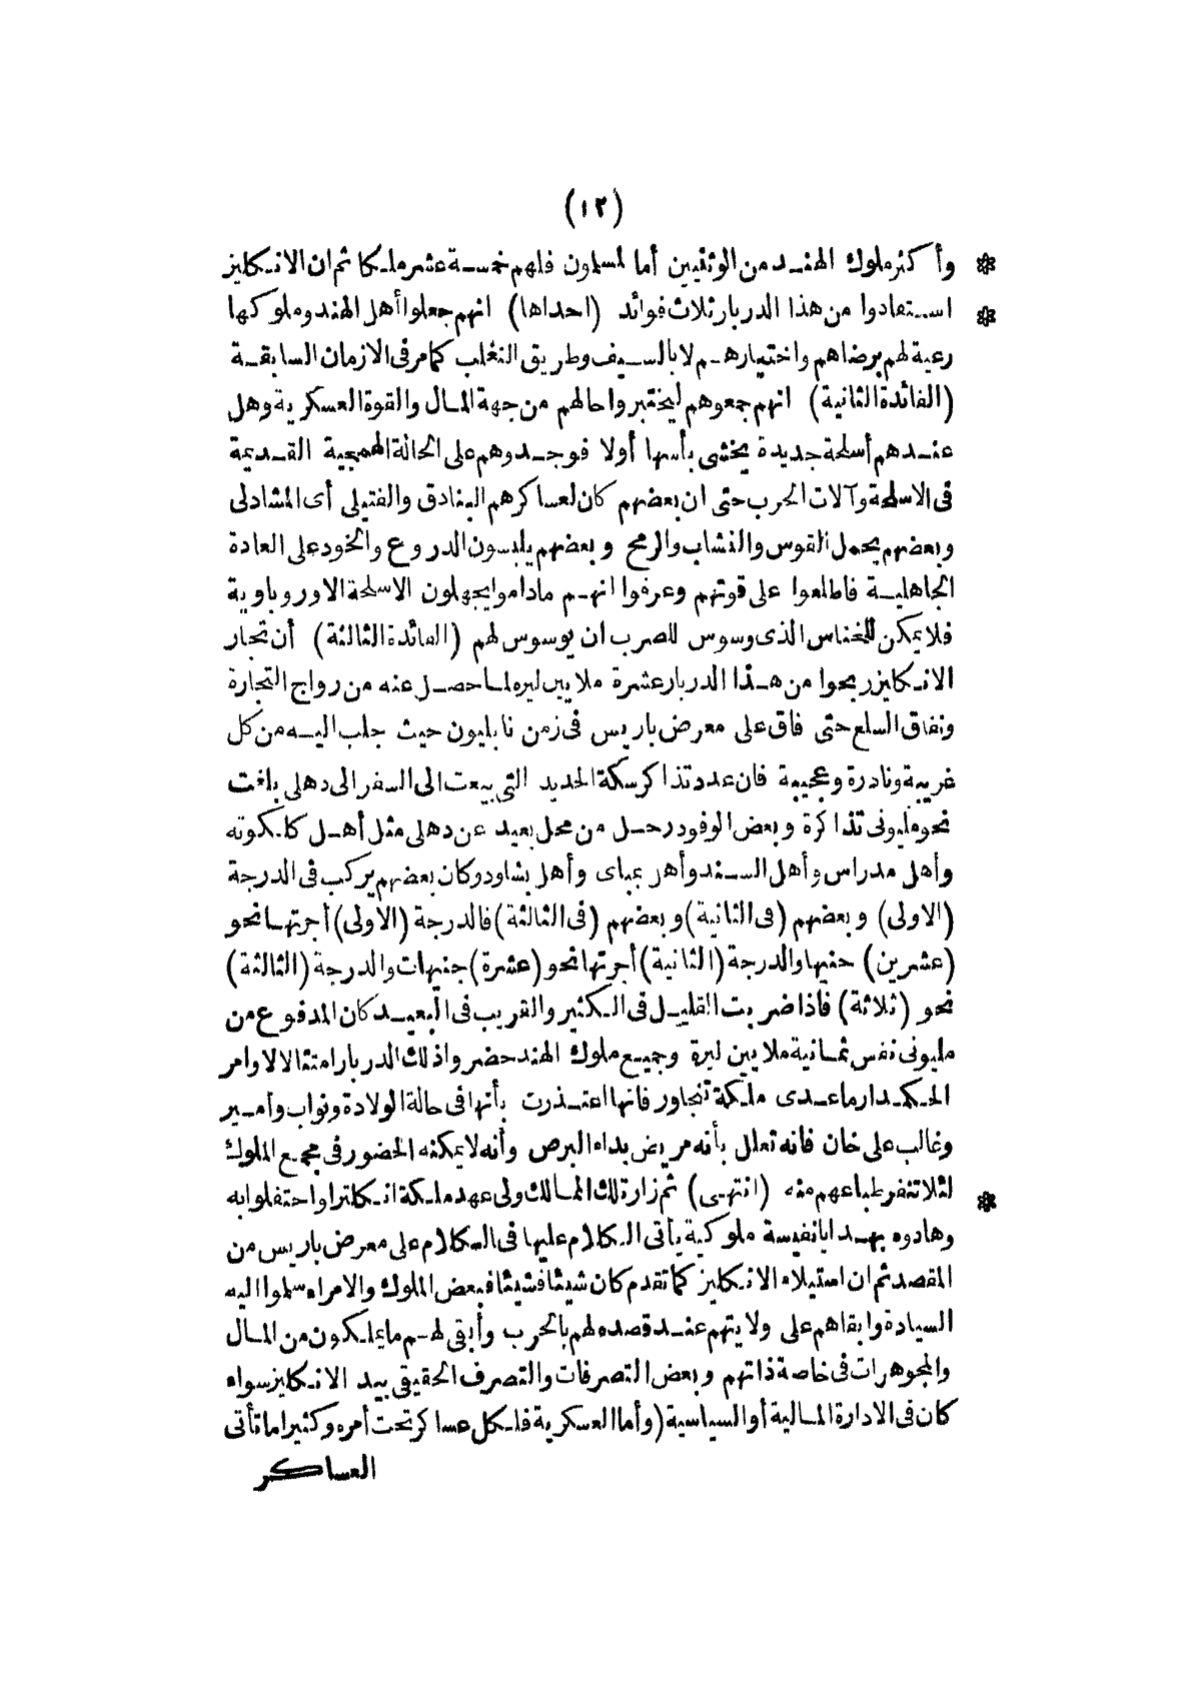 (١٢)
* وأكثر ملوك الهند من الوثنيين أما المسلمون فلهم خمسة عشر ملكا ثم ان الانكليز
* استفادوا من هذا الدربار ثلاث فوائد (احداها) انهم جعلوا أهل الهند وملوكها
رعية لهم برضاهم واختيارهم لا بالسيف وطريق التغلب كما مر فى الازمان السابقة
(الفائدة الثانية) انهم جمعوهم ليختبروا حالهم من جهة المال والقوة العسكرية وهل
عندهم أسلحة جديدة يخشى بأسها أولا فوجدوهم على الحالة الهمجية القديمة
فى الاسلحة وآلات الحرب حتى ان بعضهم كان لعساكرهم البنادق والفتيلى أى المشادلى
وبعضهم يحمل القوس والنشاب والرمح وبعضهم يلبسون الدروع والخود على العادة
الجاهلية فاطلعوا على قوتهم وعرفوا انهم ماداموا يجهلون الاسلحة الاوروباوية
فلا يمكن للخناس الذى وسوس للصرب ان يوسوس لهم (الفائدة الثالثة) أن تجار
الانكليز ربحوا من هذا الدربار عشرة ملايين ليره لما حصل عنه من رواج التجارة
ونفاق السلع حتى فاق على معرض باريس فى زمن نابليون حيث جلب اليه من كل
غريبة ونادرة وعجيبة فان عدد تذاكر سكة الحديد التى بيعت الى السفر الى دهلى بلغت
نحو مليونى تذاكرة وبعض الوفود رحل من محل بعيد عن دهلى مثل أهل كلكوته
وأهل مدراس وأهل السند وأهر بمباى وأهل بشاود وكان بعضهم يركب فى الدرجة
(الاولى) وبعضهم (فى الثانية) وبعضهم (فى الثالثة) فالدرجة (الاولى) أجرتها نحو
(عشرين) جنيها والدرجة (الثانية) أجرتها نحو (عشرة) جنيهات والدرجة (الثالثة)
نحو (ثلاثة) فاذا ضربت القليل فى الكثير والقريب فى البعيد كان المدفوع من
مليونى نفس ثمانية ملايين ليرة وجميع ملوك الهند حضروا ذلك الدربار امتثالا لاوامر
الحكمدار ماعدى ملكة تنجاور فانها اعتذرت بأنها فى حالة الولادة ونواب وأمير
وغالب على خان فانه تعلل بأنه مريض بداء البرص وأنه لا يمكنه الحضور فى مجمع الملوك
* لئلا تنفر طباعهم منه (انتهى) ثم زار تلك الممالك ولى عهد ملكة انكلترا واحتفلوا به
وهادوه بهدايا نفيسة ملوكية يأتى الكلام عليها فى الكلام على معرض باريس من
المقصد ثم ان استيلاء الانكليز كما تقدم كان شيئا فشيئا فبعض الملوك والامراء سلموا اليه
السيادة وابقاهم على ولايتهم عند قصده لهم بالحرب وأبقى لهم ما يملكون من المال
والمجوهرات فى خاصة ذاتهم وبعض التصرفات والتصرف الحقيقى بيد الانكليز سواء
كان فى الادارة المالية أو السياسية (وأما العسكرية فلكل عساكر تحت أمره وكثيرا ما تأتى
العساكر